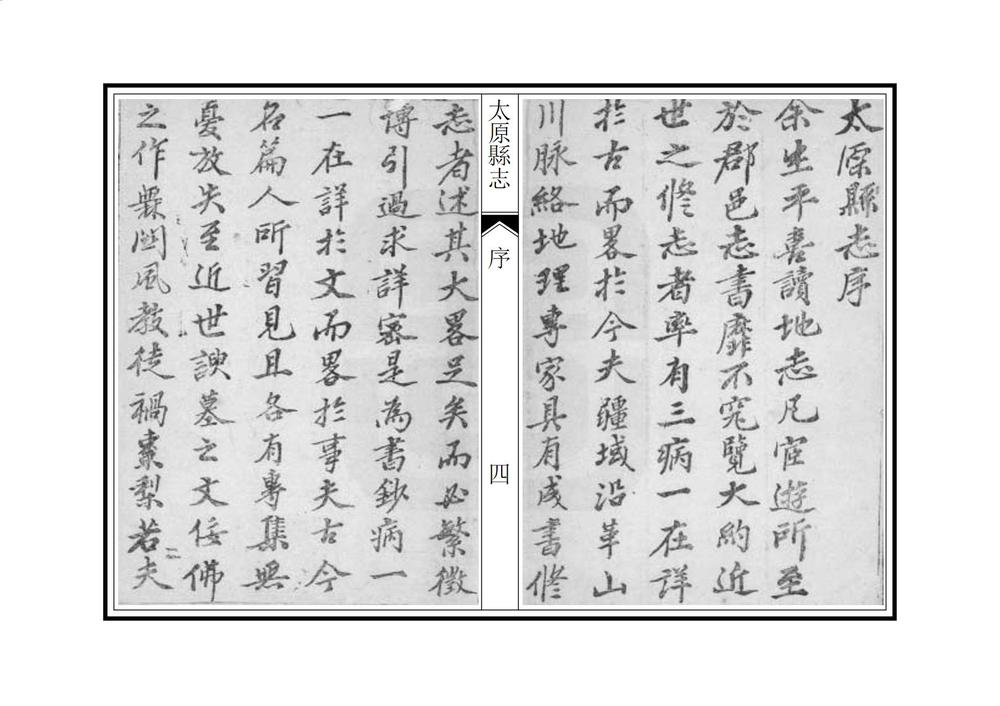 太原縣志序
余生平喜讀地志凡宦遊所至
於郡邑志書靡不究覽大約近
世之修志者率有三病一在詳
於古而畧於今夫疆域沿革山
川脉絡地理專家具有成書修
太原縣志
序
四
志者述其大畧足矣而必繁徵
博引過求詳密是為書鈔病一
一在詳於文而畧於事夫古今
名篇人所習見且各有專集無
憂放失至近世諛墓之文佞佛
之作無關風教徒禍棗梨若夫